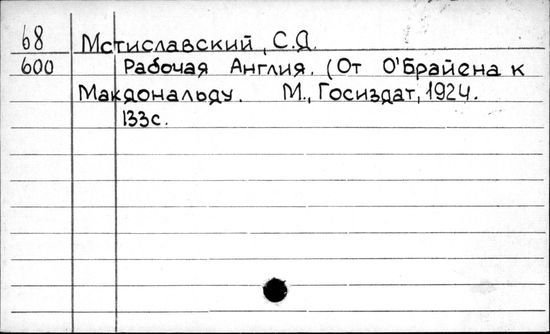 68 Мстиславский, С.Д.
600 Рабочая Англия. (От О'Брайена к
Макдональду. М., Госиздат, 1924.
133с.